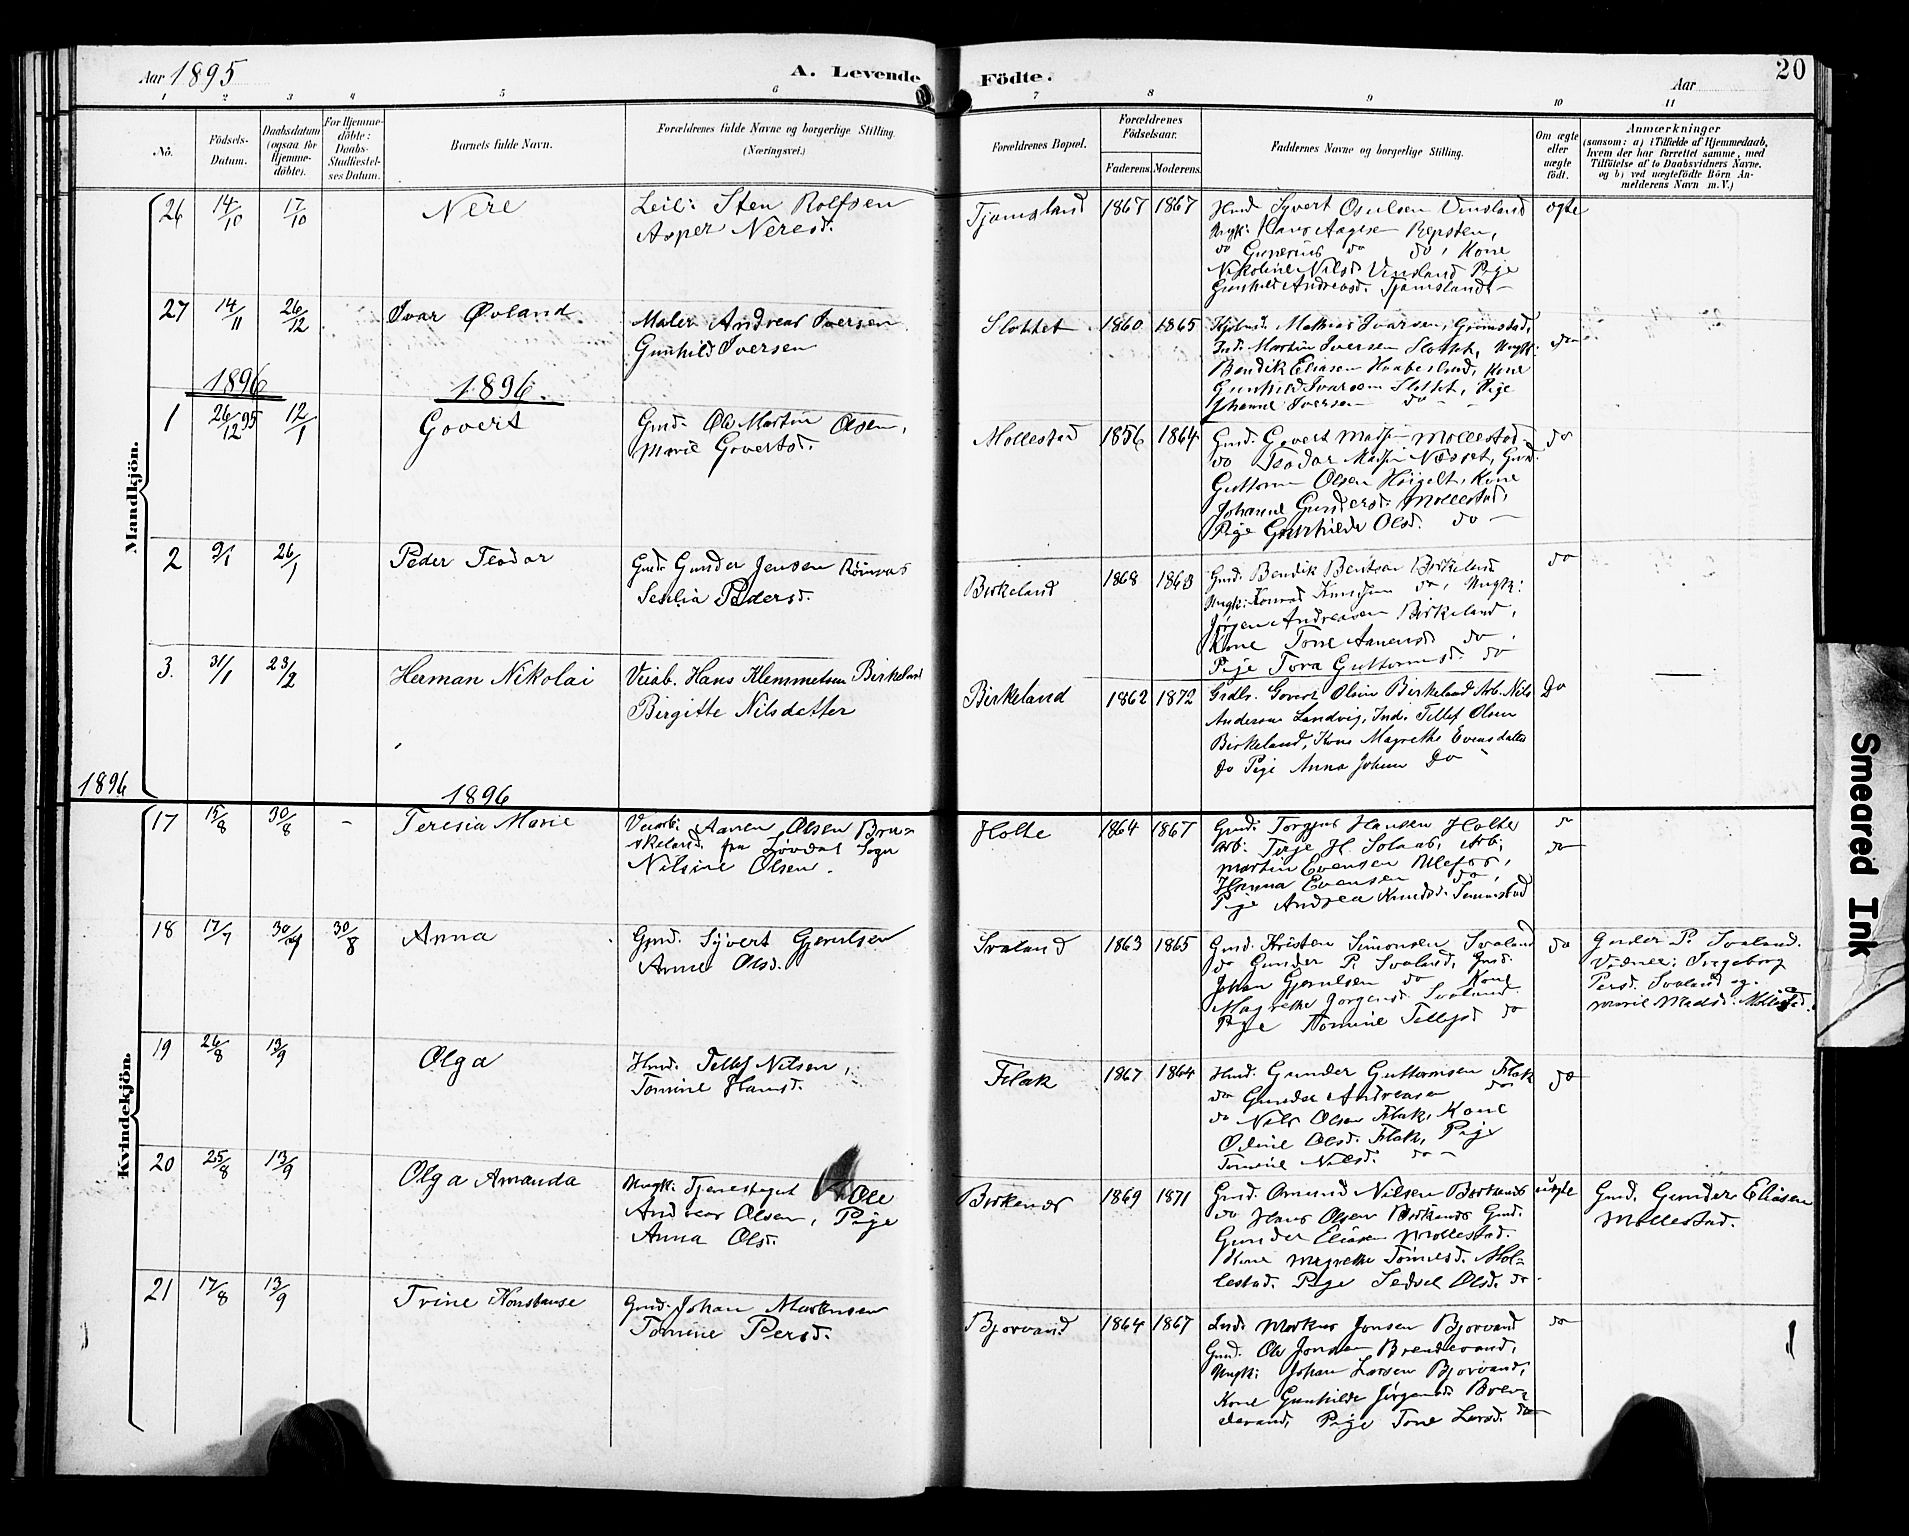 Aar 1895
A. Levende Födte.
Aar
20
1 2 3 4 5 6 7 8 9 10 11
No.
Födsels-Datum.
Daabsdatum (ogsaa for Hjemme-döbte).
For Hjemme-döbte: Daabs-Stadfæstel-ses Datum.
Barnets fulde Navn.
Forældrenes fulde Navne og borgerlige Stilling.
(Næringsvei.)
Forældrenes Bopæl.
Forældrenes Födselsaar.
Faderens. Moderens.
Faddernes Navne og borgerlige Stilling.
Om ægte eller uægte födt.
Anmærkninger
(saasom: a) i Tilfælde af Hjemmedaab, hvem der har forrettet samme, med Tilföielse af to Daabsvidners Navne, og b) ved uægtefödte Börn An-melderens Navn m. V.)
Mandkjön.
26 14/10 17/10 Nere
Leil: Sten Rolfsen
Asper Neresd.
Tjomsland 1867 1867
Hmd Syvert Osulsen Vinsland
Ungk: Aagesen Repsten,
do Gunerius do do, Kone
Nikoline Nilsd. Vinsland Pige
Gunhild Andreasd. Tjomsland
ægte
27 14/11 26/12 Ivar Øvland
Maler Andreas Iversen
Gunhild Iversen
Slottet 1860 1865
Mathias Ivarsen, Grimstad,
Ind. Martin Iversen Slottet, Ungk:
Bendik Eliasen Haabesland, Kone
Gunhild Ivarsen Slottet, Pige
Johanne Iversen do
do
1896 1896.
1 26/12 95 12/1 Govert
Gmd. Ole Martin Olsen,
Marie Govertsd.
Mollestad 1856 1864
Gmd. Govert Mads. Mollestad
do Teodor Mads. Næsset, Gmd.
Guttorm Olsen Høigelt, Kone
Johanne Gundersd. Mollestad,
Pige Gunhilde Olsd. do
do
2 9/1 26/1 Peder Teodor
Gmd. Gunder Jensen
Pedersd.
Birkeland 1868 1863
Gmd. Bendik Bentsen Birkeland
Ungk: Konrad do, Ungk:
Jörgen Andreasen Birkeland,
Kone Tone Aanensd. do.
Pige Tora Guttormsd. do
do
3. 31/1 23/2 Herman Nikolai
Veiab. Hans Klemmetsen Birkeland
Birgitte Nilsdatter
Birkeland 1862 1872
Govert Olsen Birkeland Arb. Nils
Andersen Landvig, Ind. Tellef Olsen
Birkeland, Kone Magrethe Evensdatter
do Pige Anna Johnsn do
Do
1896 1896
Kvindekjön.
17 15/8 30/8 - Teresia Marie
Veiarb: Aanen Olsen
fra Løvdal Sogn
Nilsine Olsen.
Holte 1864 1867
Gmd. Torgjus Hansen Holte
Arb: Terje H. Solaas, Arb;
Martin Evensen Ulefos,
Hanna Evensen do,
Pige Andrea Knudsd.
do
do
18 17/7 30/8 Anna
Gmd. Syvert Gjerulsen
Anne Olsd.
Svaland 1863 1865
Gmd. Kristen Simonsen Svaland
do Gunder P. Svaland, Gmd.
Johan Gjerulsen do Kone
Magrethe Jorgensd. Svaland
Pige Tomine Tellefsd. do
do
Gunder P. Svaland.
Vidner: Ingeborg
Persd. Svaland og
Marie Madsd. Mollestad.
19 26/8 13/9 Olga
Hmd. Tellef Nilsen,
Tomine Hansd.
Flak 1867 1864
Hmd. Gunder Guttormsen Flak
do Gunder Andreasen do
do Nils Olsen Flak, Kone
Oline Olsd. Flak, Pige
Tomine Nilsd. do
do
20 25/8 13/9 Olga Amanda
Ungk: Ole
Andreas Olsen, Pige
Anna Olsd.
Birkenes 1869 1871
Gmd. Omund Nilsen Birkenes
do Hans Olsen Birkenes Gmd.
Gunder Eliasen Mollestad.
Kone Magrethe Tömesd. Mol-
lestad. Pige Olsd. do.
uægte
Gmd. Gunder Eliasen
Mollestad.
21 17/8 13/9 Trine Konstanse
Gmd. Johan Markusen
Tomine Persd.
Bjorvand 1864 1867
Markus Jonsen Bjorvand
Gmd. Ole Jonsen Brendevand,
Ungk: Johan Larsen Bjorvand,
Kone Gunhilde Jörgensd. Bren-
devand, Pige Tone Larsd. do
do
Smeared Ink